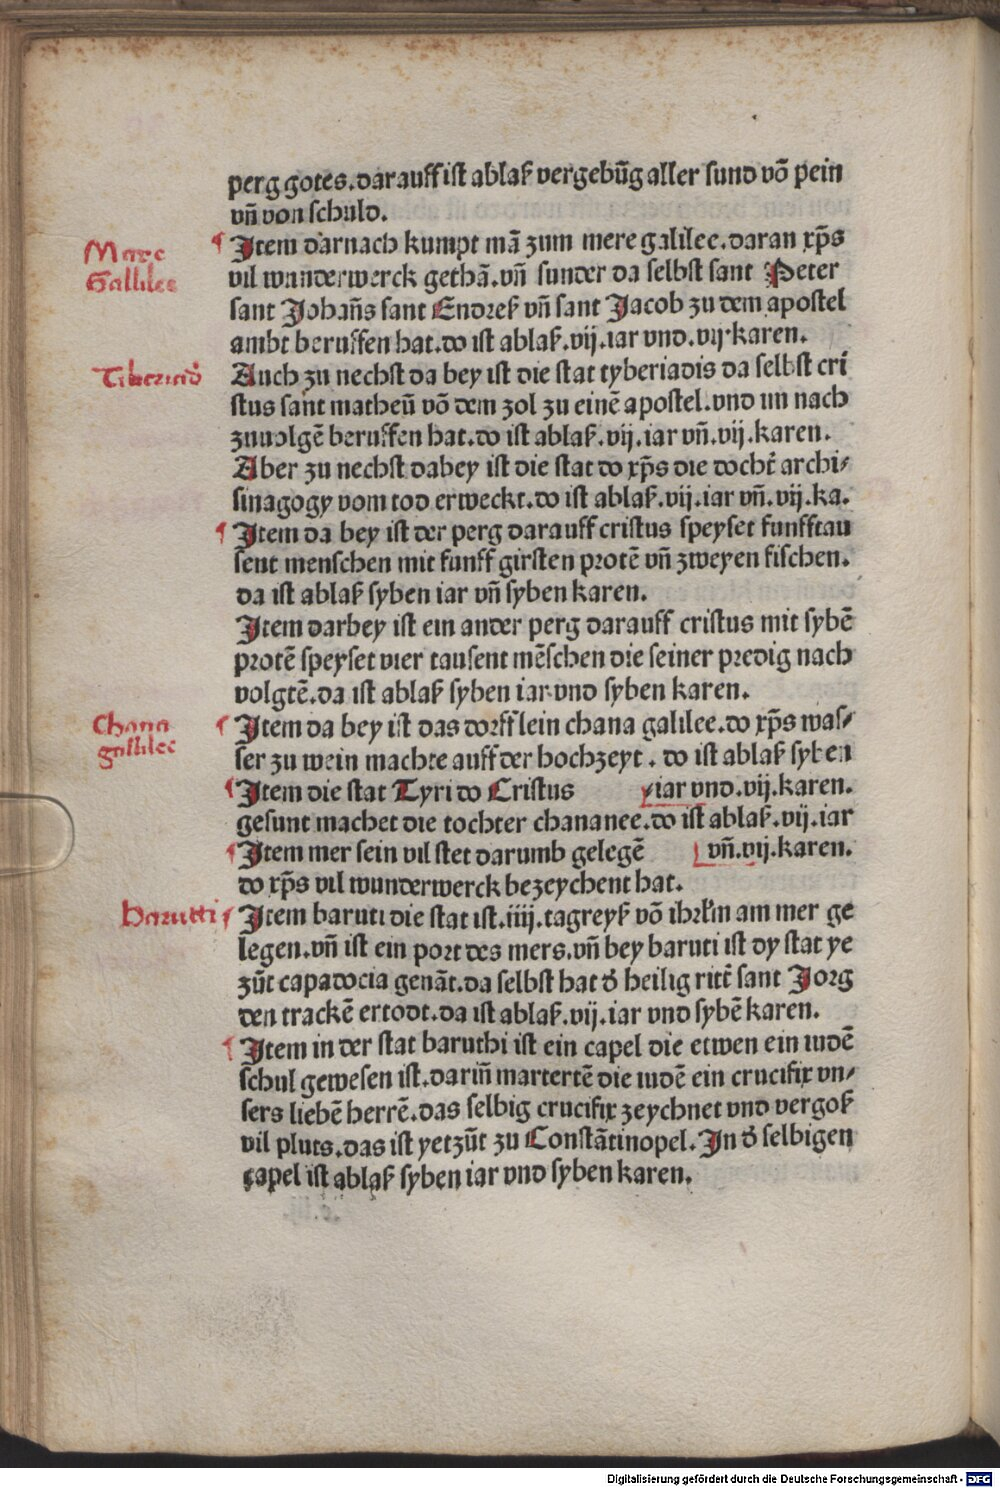 perg gotes.darauff ist ablaß vergebūg aller sund vō pein
vñ von schuld.
Mare
Gallilee
¶ Item darnach kumpt mā zum mere galilee.daran xp̄s
vil wunderwerck gethā.vñ sunder da selbst sant Peter
sant Johañs sant Endreß vñ sant Jacob zu dem apostel
ambt beruffen hat.do ist ablaß.vij.iar vnd.vij.karen.
Tiberiad
Auch zu nechst da bey ist die stat tyberiadis da selbst cri
stus sant matheū vō dem zol zu einē apostel.vnd im nach
zuuolgē beruffen hat.do ist ablaß.vij.iar vñ.vij.karen.
Aber zu nechst dabey ist die stat do xp̄s die docht̄ archi⸗
sinagogy vom tod erweckt.do ist ablaß.vij.iar vñ.vij.ka.
¶ Item da bey ist der perg darauff cristus speyset funfftau
sent menschen mit funff girsten protē vñ zweyen fischen.
da ist ablaß syben iar vñ syben karen.
Item darbey ist ein ander perg darauff cristus mit sybē
protē speyset vier tausent mēschen die seiner predig nach
volgtē.da ist ablaß syben iar vnd syben karen.
Chana
gallilee
¶ Item da bey ist das dorfflein chana galilee.do xp̄s was⸗
ser zu wein machte auff der hochzeyt . do ist ablaß syben
¶ Item die stat Tyri do Cristus iar vnd.vij.karen.
gesunt machet die tochter chananee.do ist ablaß.vij.iar
¶ Item mer sein vil stet darumb gelegē vñ.vij.karen.
do xp̄s vil wunderwerck bezeychent hat.
Barutti
¶ Item baruti die stat ist.iiij.tagreyß vō ihrl̄m am mer ge
legen.vñ ist ein port des mers.vñ bey baruti ist dy stat ye
zūt capadocia genāt.da selbst hat d̄ heilig ritt̄ sant Jorg
den trackē ertodt.da ist ablaß.vij.iar vnd sybē karen.
¶ Item in der stat baruthi ist ein capel die etwen ein iudē
schul gewesen ist.dariñ martertē die iudē ein crucifix vn⸗
sers liebē herrē.das selbig crucifix zeychnet vnd vergoß
vil pluts.das ist yetzūt zu Constātinopel.In d̄ selbigen
capel ist ablaß syben iar vnd syben karen.
Digitalisierung gefördert durch die Deutsche Forschungsgemeinschaft - DFG